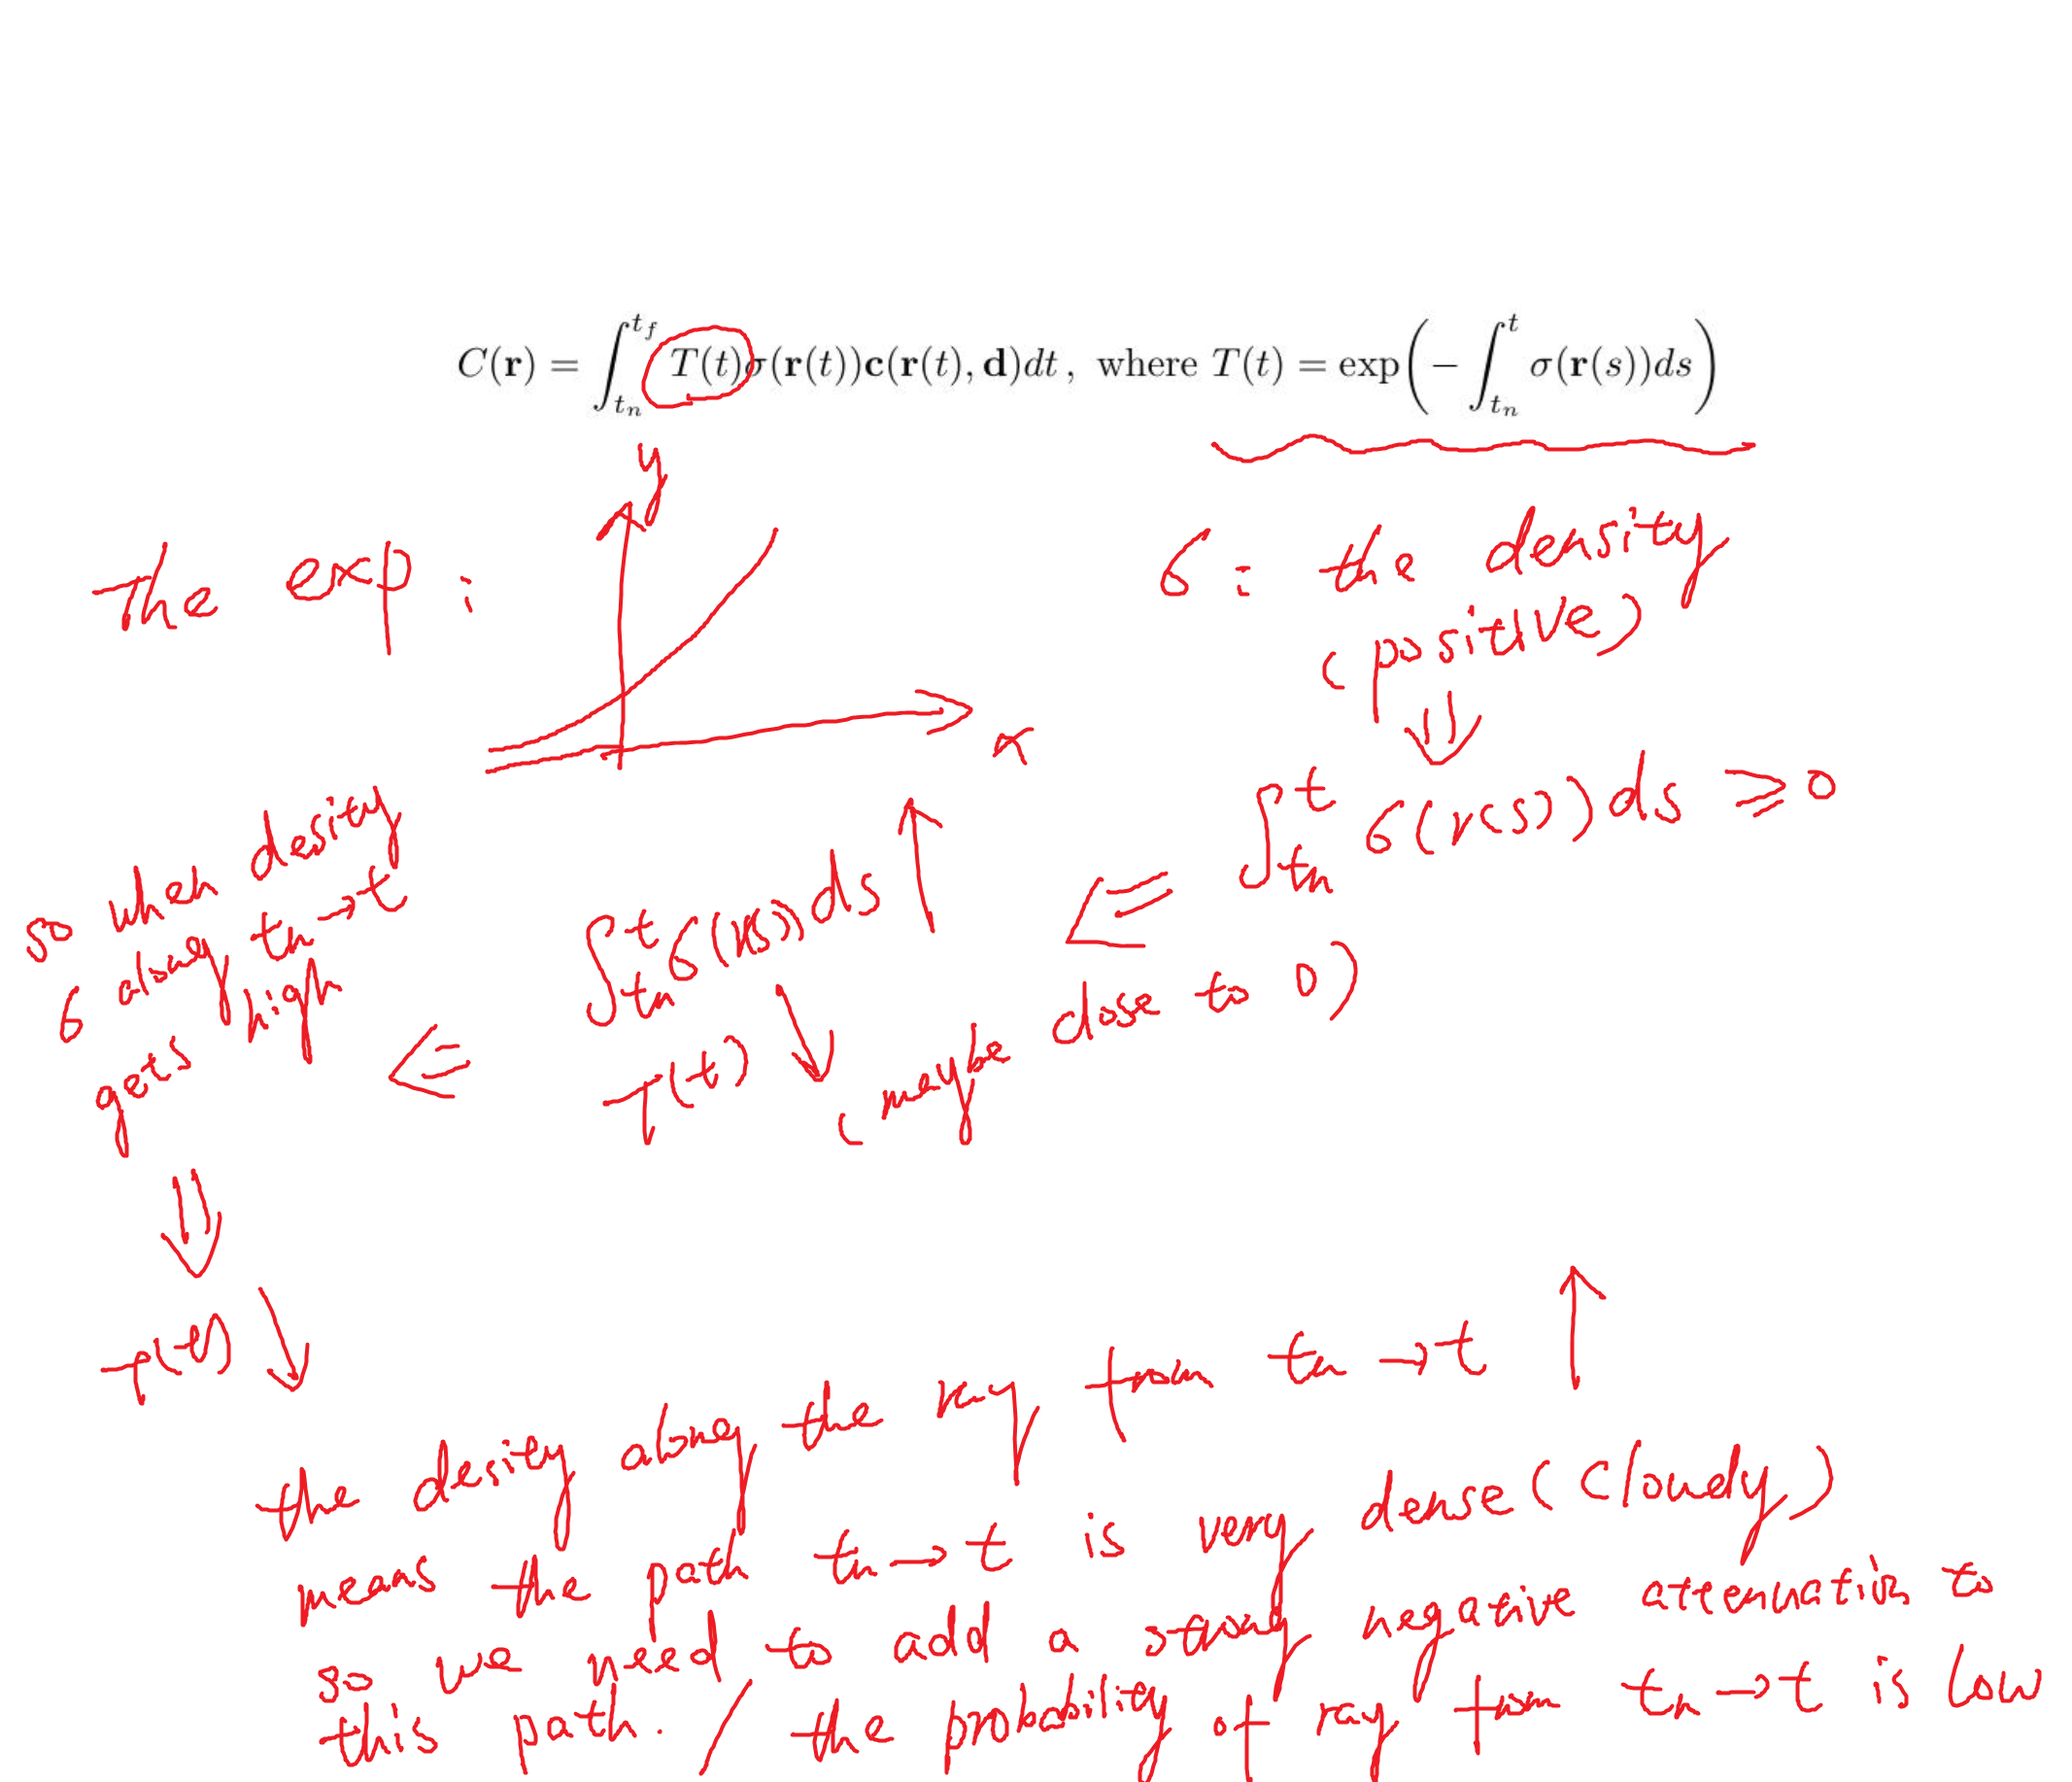 C(r) = ∫_{t_n}^{t_f} T(t)σ(r(t))c(r(t), d)dt , where T(t) = exp(−∫_{t_n}^{t} σ(r(s))ds)
The exp :
y
x
6 : the density
(positive)
∫_{tn}^{t} 6(r(s))ds ⩾ 0
∫_{tn}^{t} 6(r(s))ds ↑
T(t) ↘ (maybe close to 0)
so when desity
6 along tn→t
gets high
T(t) ↘
the desity along the ray from tn → t ↑
means the path tn → t is very dense (cloudy)
so we need to add a strong negative attenuation to
this path. / the probability of ray from tn → t is low